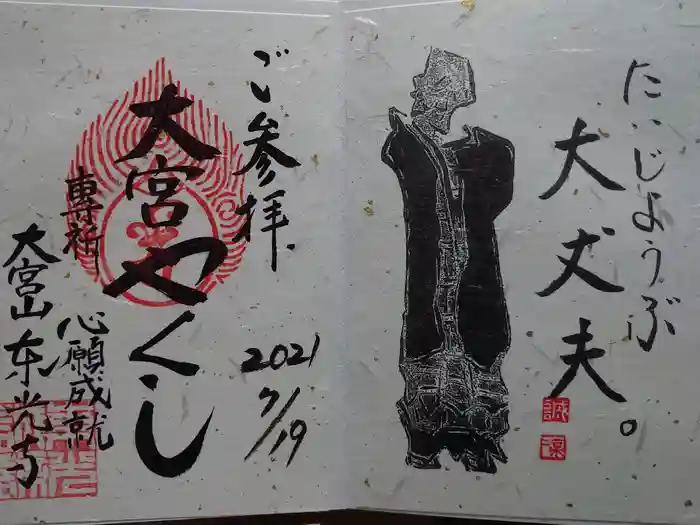 たいじょうぶ
大丈夫。
誠
ご参拝
2021
7/19
大宮やくし
専祈
心願成就
大宮山東光寺